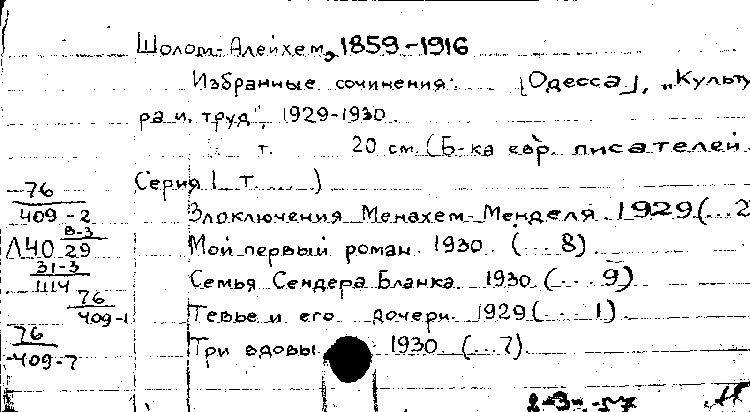 Шолом-Алейхем, 1859-1916
Избранные сочинения. [Одесса], „Культу
ра и труд", 1929-1930.
т. 20 см. (Б-ка евр. писателей
Серия 1 т. ...)
76
409-2
Злоключения Менахем-Менделя. 1929 (...2
Л40 В-3
29
Мой первый роман. 1930. (...8)
31-3
1114
Семья Сендера Бланка. 1930 (...9)
76
409-1
Тевье и его дочери. 1929 (...1)
76
409-7
Три вдовы 1930. (...7)